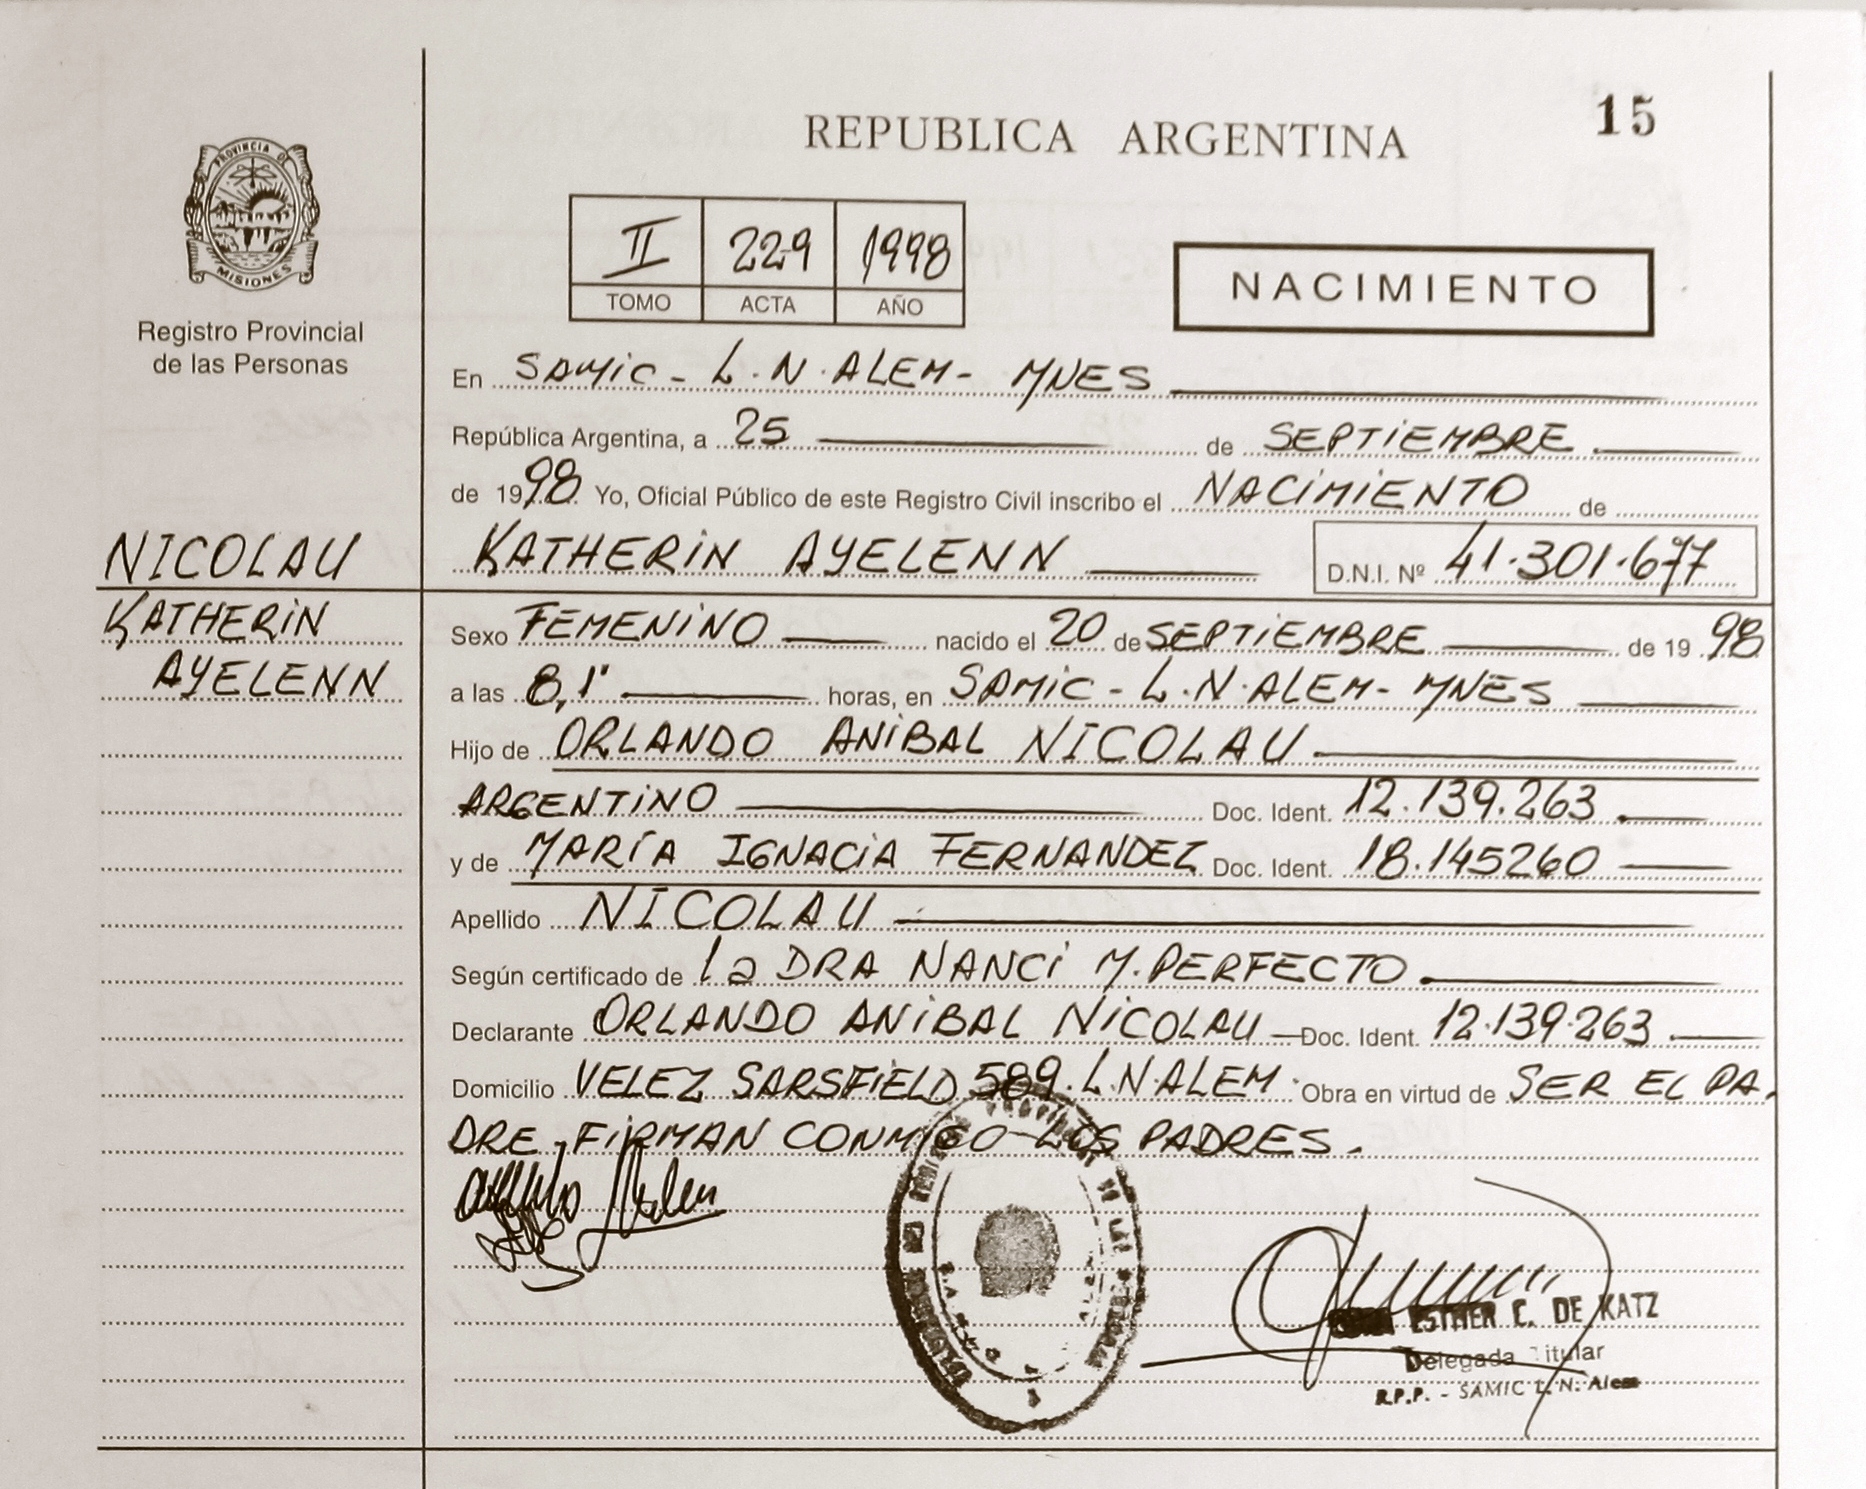 15
REPUBLICA ARGENTINA
PROVINCIA DE
MISIONES
Registro Provincial
de las Personas
II 229 1998
TOMO ACTA AÑO
NACIMIENTO
En SAMIC - L.N.ALEM - MNES
República Argentina, a 25 de SEPTIEMBRE
de 1998 Yo, Oficial Público de este Registro Civil inscribo el NACIMIENTO de
NICOLAU
KATHERIN AYELENN D.N.I. Nº 41.301.677
KATHERIN
AYELENN
Sexo FEMENINO nacido el 20 de SEPTIEMBRE de 1998
a las 8,1" horas, en SAMIC - L.N.ALEM - MNES
Hijo de ORLANDO ANIBAL NICOLAU
ARGENTINO Doc. Ident. 12.139.263
y de MARÍA IGNACIA FERNANDEZ Doc. Ident. 18.145260
Apellido NICOLAU
Según certificado de la DRA NANCI M. PERFECTO
Declarante ORLANDO ANIBAL NICOLAU - Doc. Ident. 12.139.263
Domicilio VELEZ SARSFIELD 589. L.N.ALEM. Obra en virtud de SER EL PA.
DRE, FIRMAN CONMIGO LOS PADRES.
ESTHER C. DE KATZ
Delegada Titular
R.P.P. - SAMIC L. N. Alem